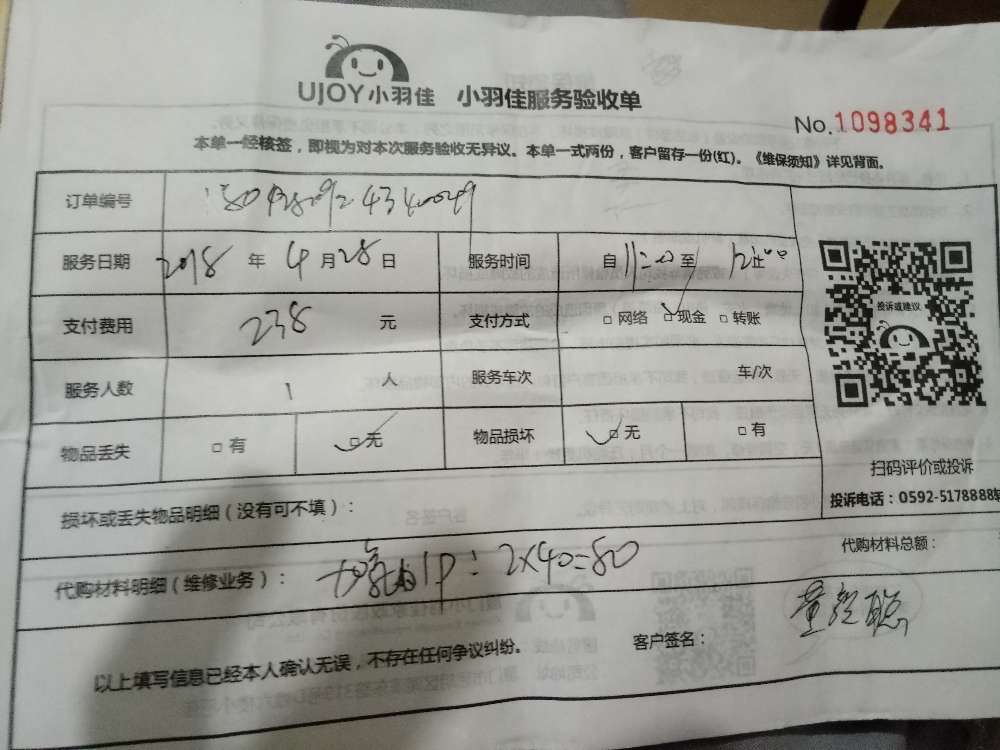 UJOY小羽佳 小羽佳服务验收单
No.1098341
本单一经核签，即视为对本次服务验收无异议。本单一式两份，客户留存一份(红)。《维保须知》详见背面。
订单编号
服务日期 2018 年 4 月 28 日 服务时间 自 11:00 至
支付费用 238 元 支付方式 □网络 □现金 □转账
服务人数 1 人 服务车次 车/次
物品丢失 □有 □无 物品损坏 □无 □有
投诉或建议
扫码评价或投诉
投诉电话：0592-5178888转
损坏或丢失物品明细（没有可不填）：
代购材料明细（维修业务）： 1P：2×40=80
代购材料总额：
以上填写信息已经本人确认无误，不存在任何争议纠纷。
客户签名：